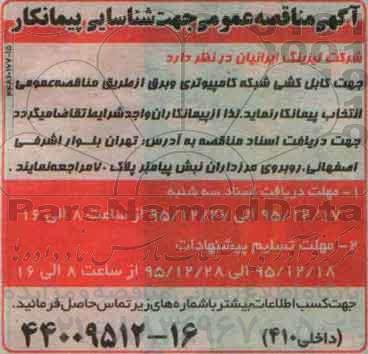 آگهی مناقصه عمومی جهت شناسایی پیمانکار
شرکت لیزینگ ایرانیان در نظر دارد
جهت کابل کشی شبکه کامپیوتری وبرق ازطریق مناقصه عمومی
انتخاب پیمانکارنماید.لذا ازپیمانکاران واجدشرایط تقاضامیگردد
جهت دریافت اسناد مناقصه به آدرس: تهران بلوار اشرفی
اصفهانی.روبروی مرزداران نبش پیامبر پلاک ۷۰ مراجعه نمایند.
۱- مهلت دریافت اسناد سه شنبه
۹۵/۱۲/۱۷ الی ۹۵/۱۲/۲۷ از ساعت ۸ الی ۱۶
۲- مهلت تسلیم پیشنهادات
۹۵/۱۲/۱۸-الی ۹۵/۱۲/۲۸ از ساعت ۸ الی ۱۶
جهت کسب اطلاعات بیشتر با شماره های زیر تماس حاصل فرمائید.
(داخلی ۴۱۰) ۴۴۰۰۹۵۱۲-۱۶
ParsNamadData